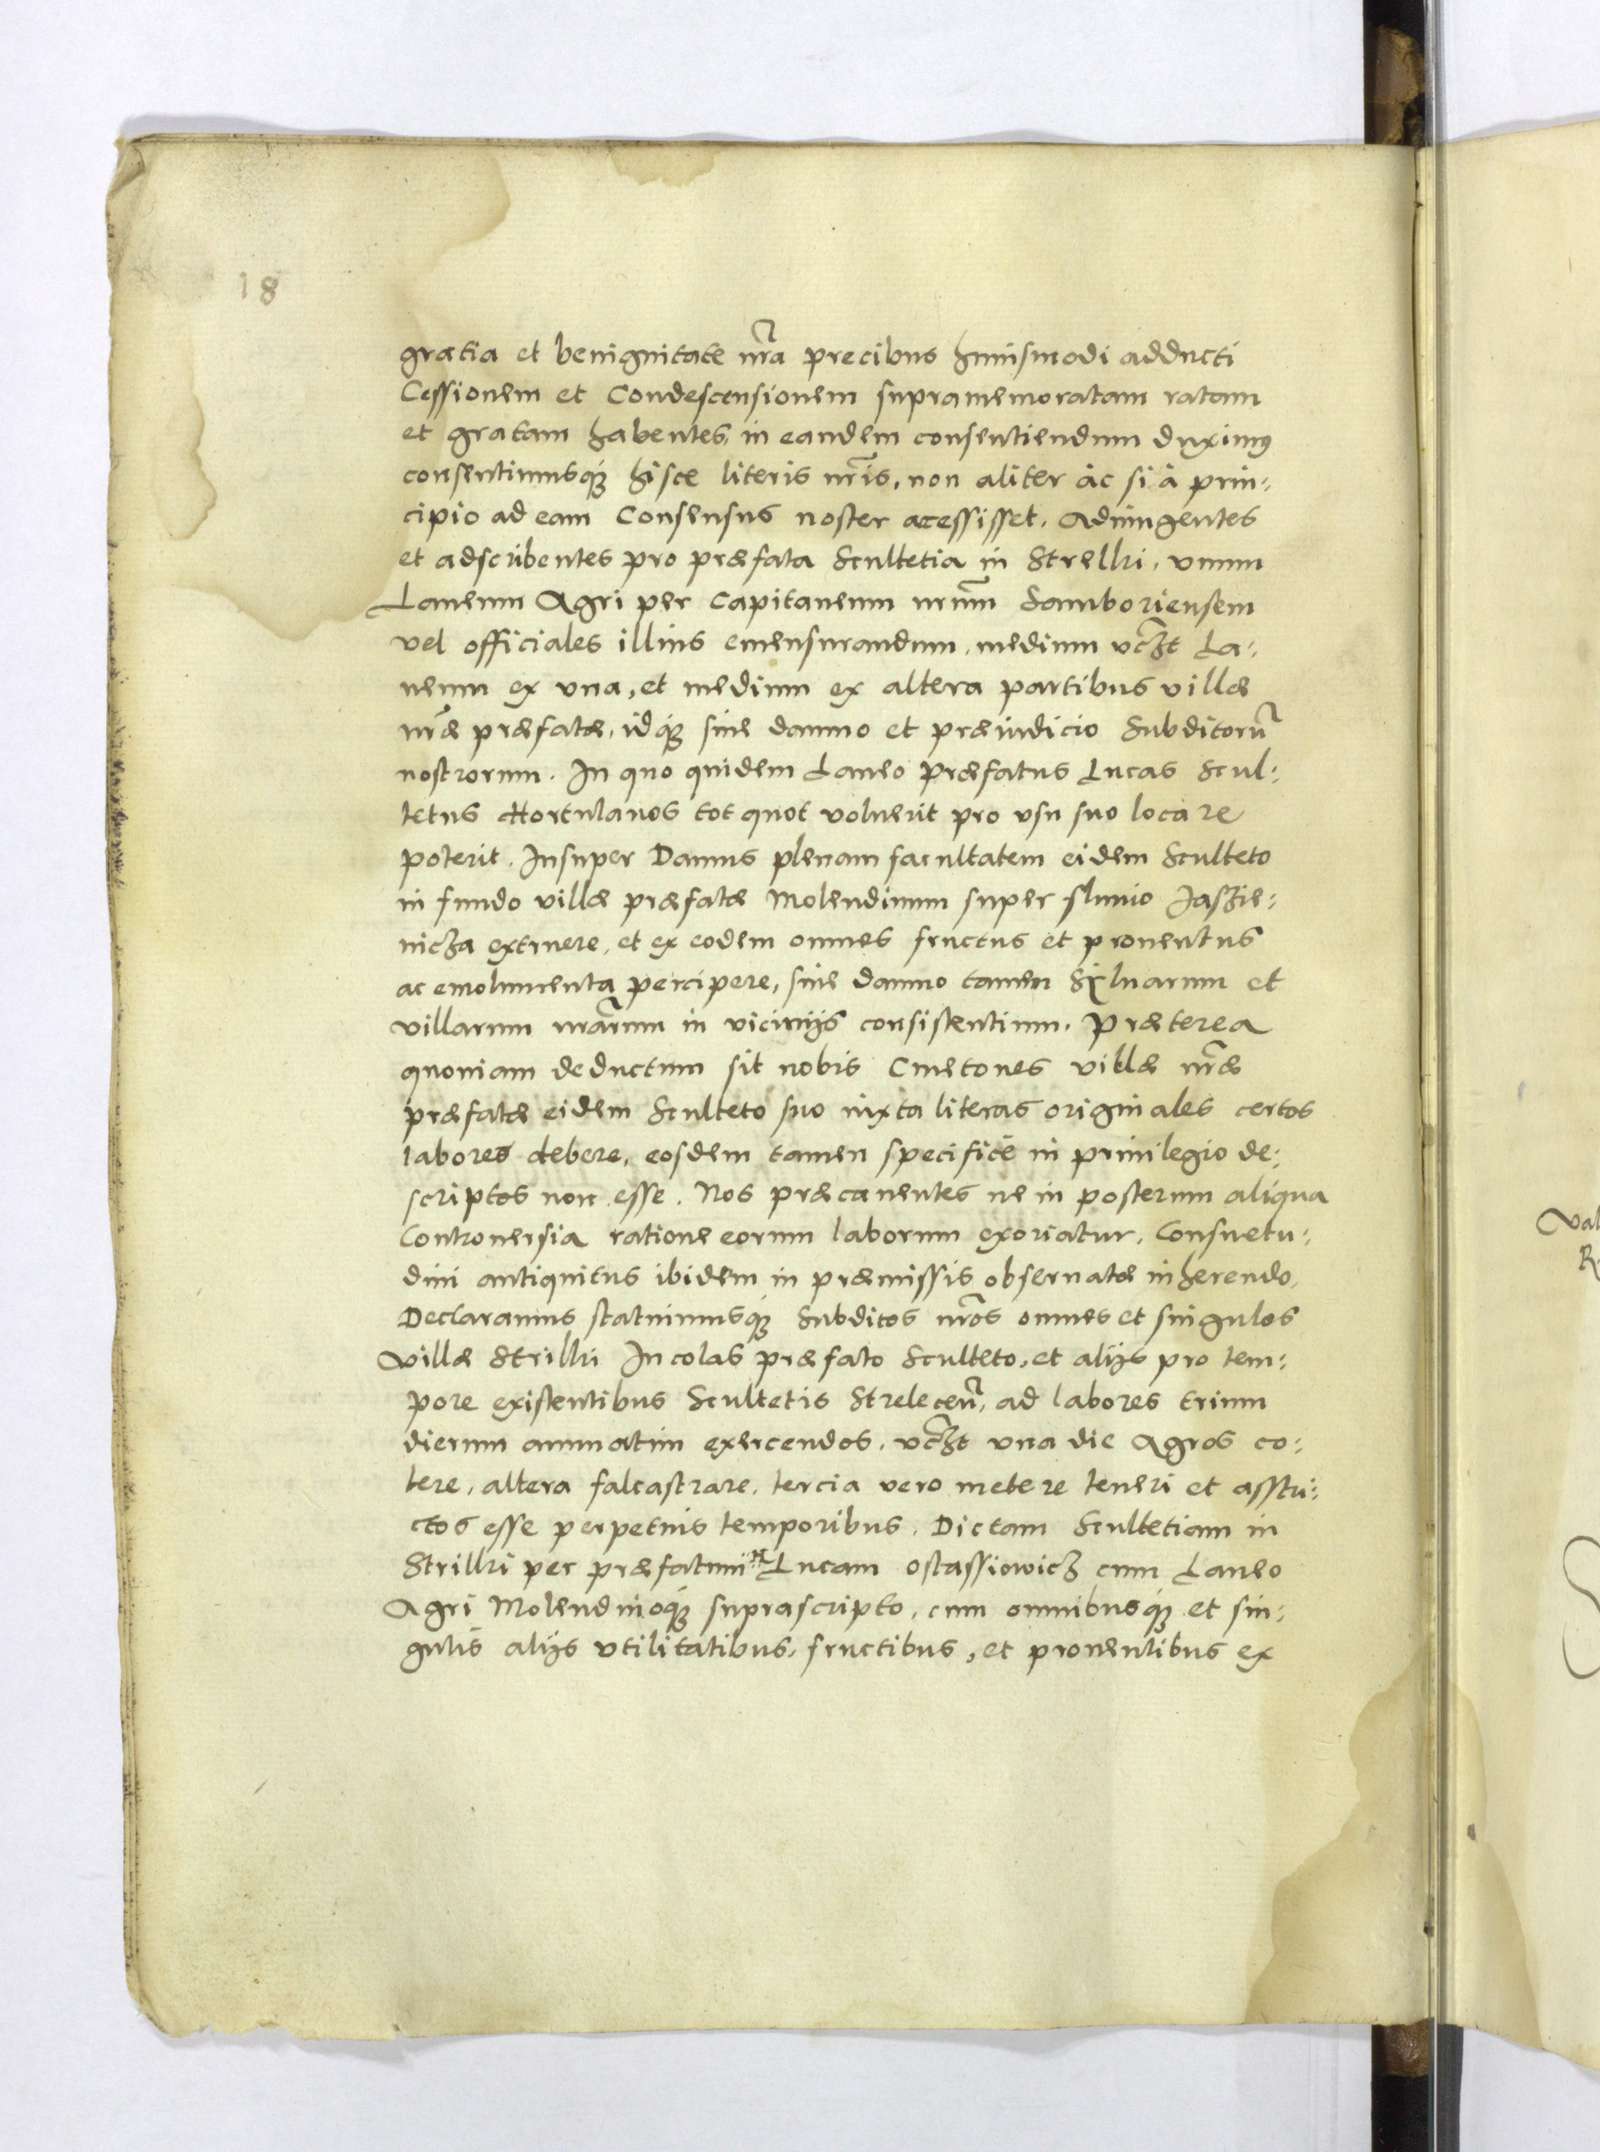 18
gratia et benignitate nr̃a precibus huiusmodi adducti
Cessionem et Condescensionem supramemoratam ratam
et gratam habentes, in eandem consentiendum duximꝰ
consentimusq́ꝫ hisce literis nr̃is, non aliter ác si à prin:
cipio ad eam Consensus noster acessisset. Adiungentes
et adscribentes pro præfata Scultetia in Strelki, vnum
Laneum Agri per Capitaneum nrũm Samboriensem
vel officiales illius emensurandum, medium vcꝫt La:
neum ex vna, et medium ex altera partibus villæ
nr̃æ præfatæ, idq́ꝫ sine damno et præiudicio Subditorũ
nostrorum. In quo quidem Laneo præfatus Lucas Scul:
tetus Hortulanos tot quot voluerit pro vsu suo locare
poterit. Insuper Damus plenam facultatem eidem Sculteto
in fundo villæ præfatæ Molendinum super fluuio Jaszie:
nicza extruere, et ex eodem omnes fructus et prouentus
ac emolumenta percipere, sine damno tamen Syluarum et
villarum nrãrum in vicinijs consistentium. Præterea
quoniam deductum sit nobis Cmetones villæ nr̃æ
præfatæ eidem Sculteto suo iuxta literas originales certos
labores debere, eosdem tamen specificè in priuilegio de:
scriptos non esse. Nos præcauentes ne in posterum aliqua
Controuersia ratione eorum laborum exoriatur, Consuetu:
dini antiquitus ibidem in præmissis obseruatæ inherendo,
Declaramus statuimusq́ꝫ Subditos nr̃os omnes et singulos
villæ Strilki Incolas præfato Sculteto, et alijs pro tem:
pore existentibus Scultetis Streleceñ, ad labores trium
dierum annuatim exercendos, vcꝫt vna die Agros co:
lere, altera falcastrare, tercia vero metere teneri et asstri:
ctos esse perpetuis temporibus. Dictam Scultetiam in
Strilki per præfatum Lucam Ostassiowicz cum Laneo
Agri Molendinoq́ꝫ suprascripto, cum omnibusq́ꝫ et sin:
gulis alijs vtilitatibus, fructibus, et prouentibus ex